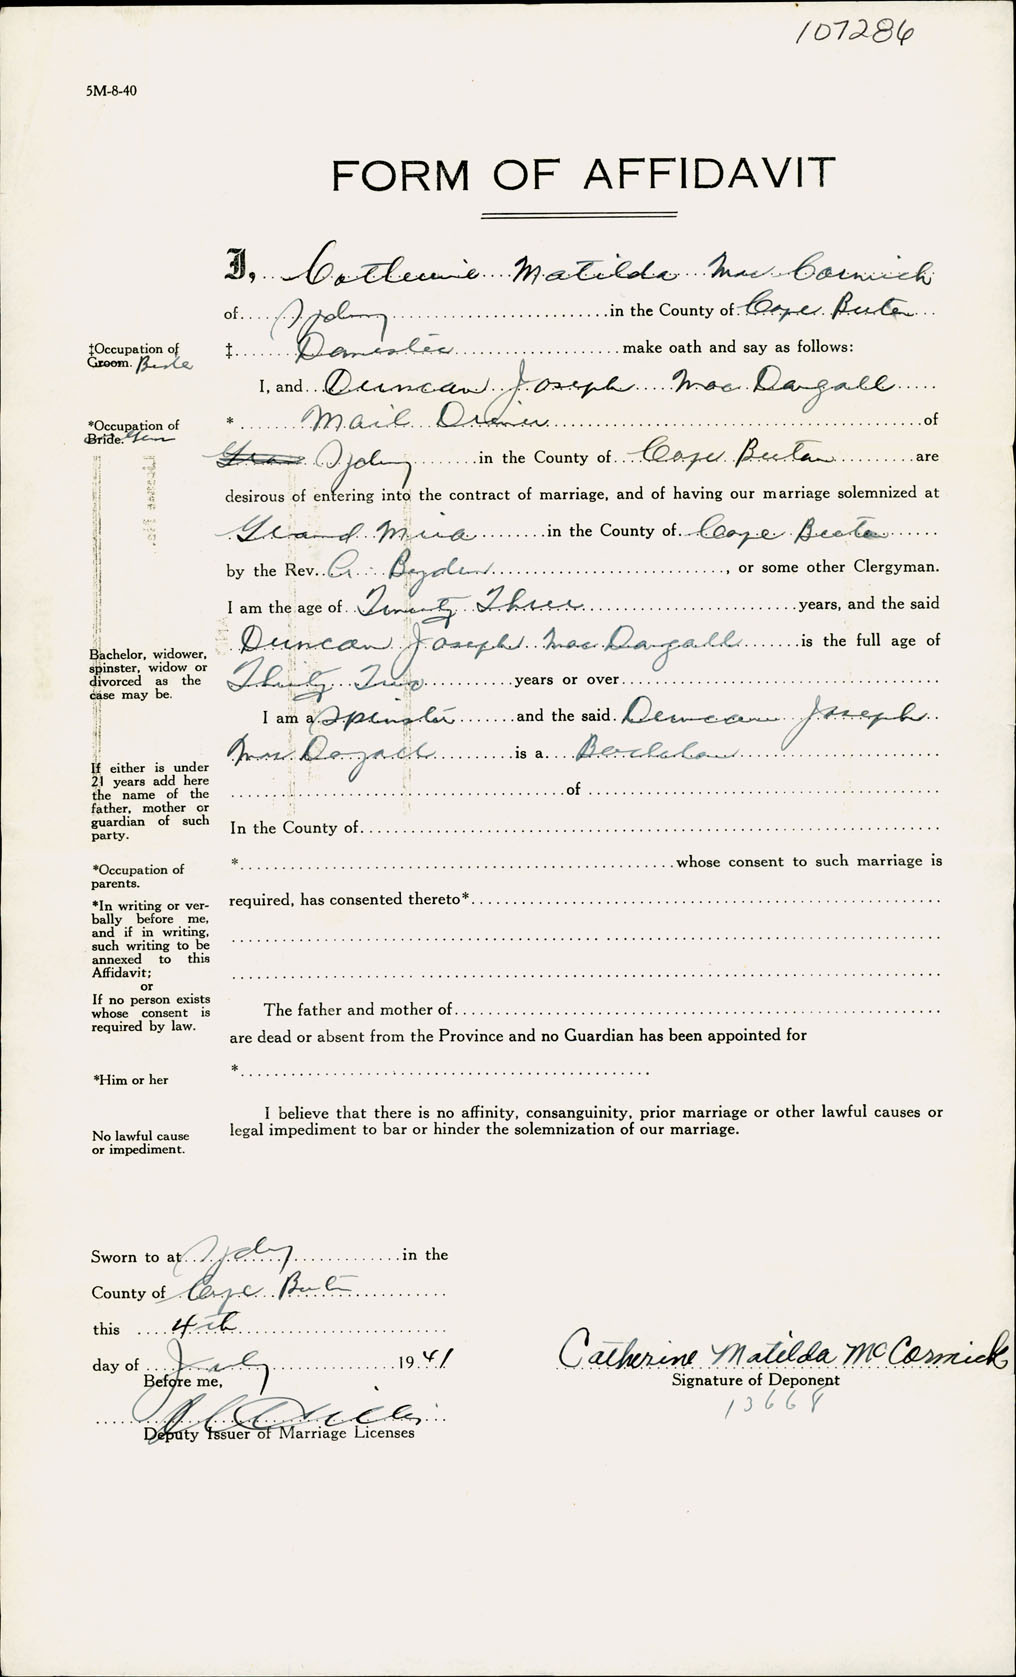 107286
5M-8-40
FORM OF AFFIDAVIT
I, Catherine Matilda Mac Cormick
of Sydney in the County of Cape Breton
‡Occupation of
Groom. Bride
‡ Domestic make oath and say as follows:
I, and Duncan Joseph Mac Dougall
*Occupation of
Bride.
* Mail Driver of
Sydney in the County of Cape Breton are
desirous of entering into the contract of marriage, and of having our marriage solemnized at
Grand Mira in the County of Cape Breton
by the Rev. A. Boyden, or some other Clergyman.
I am the age of Twenty Three years, and the said
Duncan Joseph Mac Dougall is the full age of
Bachelor, widower,
spinster, widow or
divorced as the
case may be.
Thirty Two years or over
I am a Spinster and the said Duncan Joseph
Mac Dougall is a Bachelor
If either is under
21 years add here
the name of the
father, mother or
guardian of such
party.
of
In the County of
*Occupation of
parents.
* whose consent to such marriage is
required, has consented thereto*
*In writing or ver-
bally before me,
and if in writing,
such writing to be
annexed to this
Affidavit;
or
If no person exists
whose consent is
required by law.
The father and mother of
are dead or absent from the Province and no Guardian has been appointed for
*Him or her
*
I believe that there is no affinity, consanguinity, prior marriage or other lawful causes or
legal impediment to bar or hinder the solemnization of our marriage.
No lawful cause
or impediment.
Sworn to at Sydney in the
County of Cape Breton
this 4th
day of July 1941
Before me,
Deputy Issuer of Marriage Licenses
Catherine Matilda McCormick
Signature of Deponent
13668